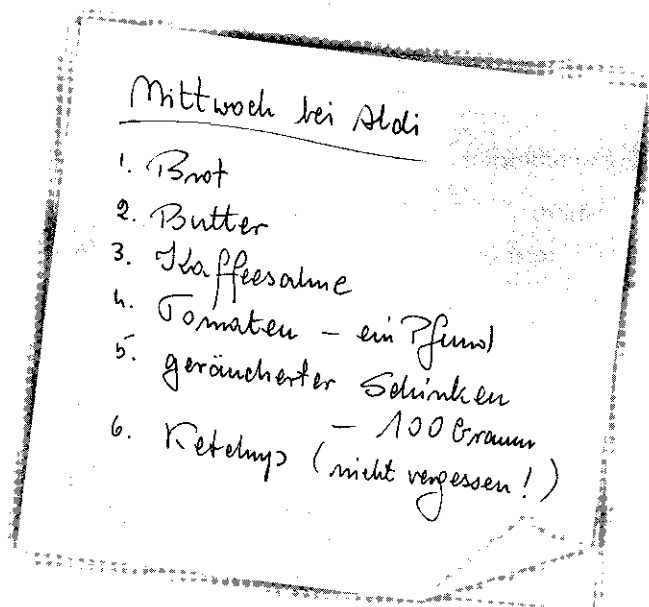 Mittwoch bei Aldi
1. Brot
2. Butter
3. Kaffeesahne
4. Tomaten – ein Pfund
5. geräucherter Schinken
– 100 Gramm
6. Ketchup (nicht vergessen!)